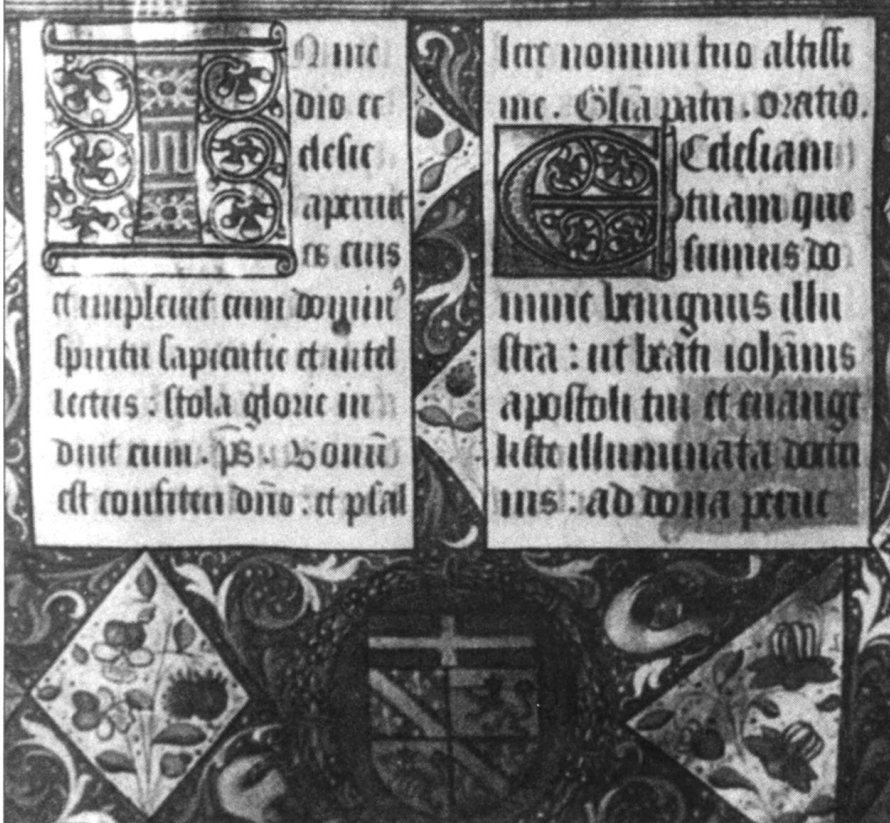 In me
dio ec
clesie
aperuit
os eius
et impleuit eum domin⁹
spiritu sapientie et intel
lectus : stola glorie in
duit eum . p̅s . Bonū
est confiteri dn̄o : et psal
lere nomini tuo altissi
me . Gl̄ia patri . oratio.
Ecclesiam
tuam que
sumus do
mine benignus illu
stra : ut beati ioh̄anis
apostoli tui et euange
liste illuminata doctri
nis : ad dona perue